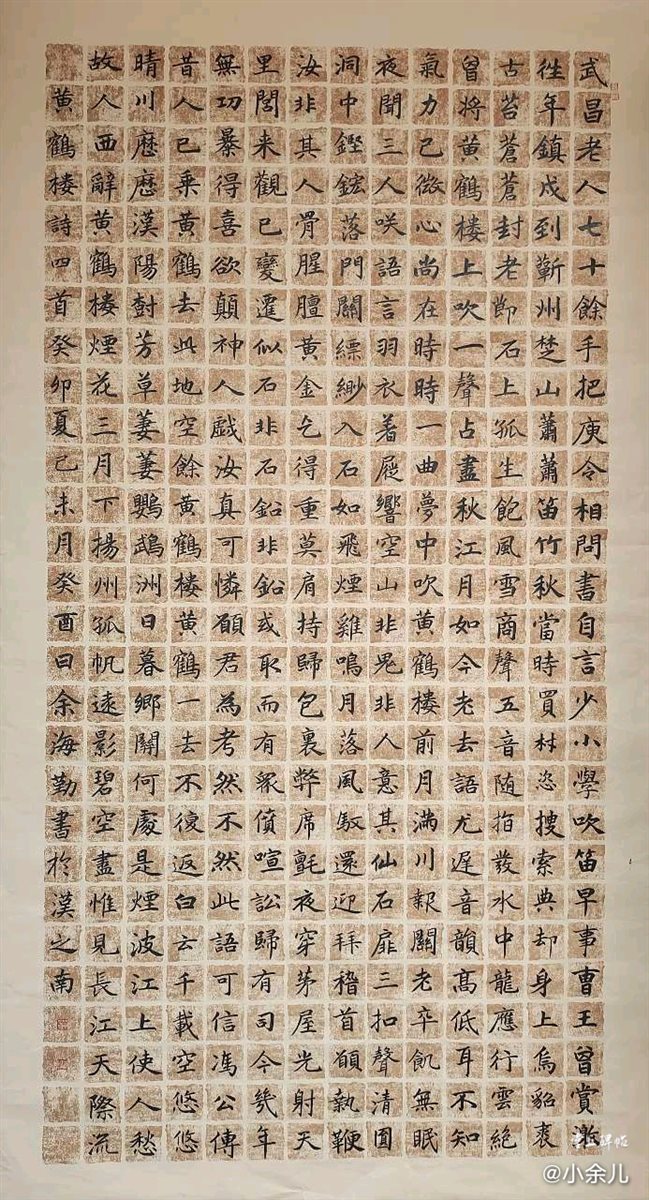 武昌老人七十餘手把庾令相問書自言少小學吹笛早事曹王曾賞激
徃年鎮戍到蘄州楚山蕭蕭笛竹秋當時買材恣搜索典却身上烏貂裘
古苔蒼蒼封老節石上孤生飽風雪商聲五音隨指發水中龍應行雲絕
曾將黃鶴樓上吹一聲占盡秋江月如今老去語尤遲音韻高低耳不知
氣力已微心尚在時時一曲夢中吹黃鶴樓前月滿川報關老卒飢無眠
夜聞三人咲語言羽衣着屐響空山非鬼非人意其仙石扉三扣聲清圓
洞中鏗鋐落門關縹緲入石如飛煙雞鳴月落風馭還迎拜稽首願執鞭
汝非其人骨腥膻黃金乞得重莫肩持歸包裹弊席氈夜穿茅屋光射天
里閭來觀已變遷似石非石鉛非鉛或取而有眾憤喧訟歸有司今幾年
無功暴得喜欲顛神人戲汝真可憐願君為考然不然此語可信馮公傳
昔人已乘黃鶴去此地空餘黃鶴樓黃鶴一去不復返白云千載空悠悠
晴川歷歷漢陽樹芳草萋萋鸚鵡洲日暮鄉關何處是煙波江上使人愁
故人西辭黃鶴樓煙花三月下揚州孤帆遠影碧空盡惟見長江天際流
黃鶴樓詩四首癸卯夏己未月癸酉日余海勤書於漢之南
@小余儿